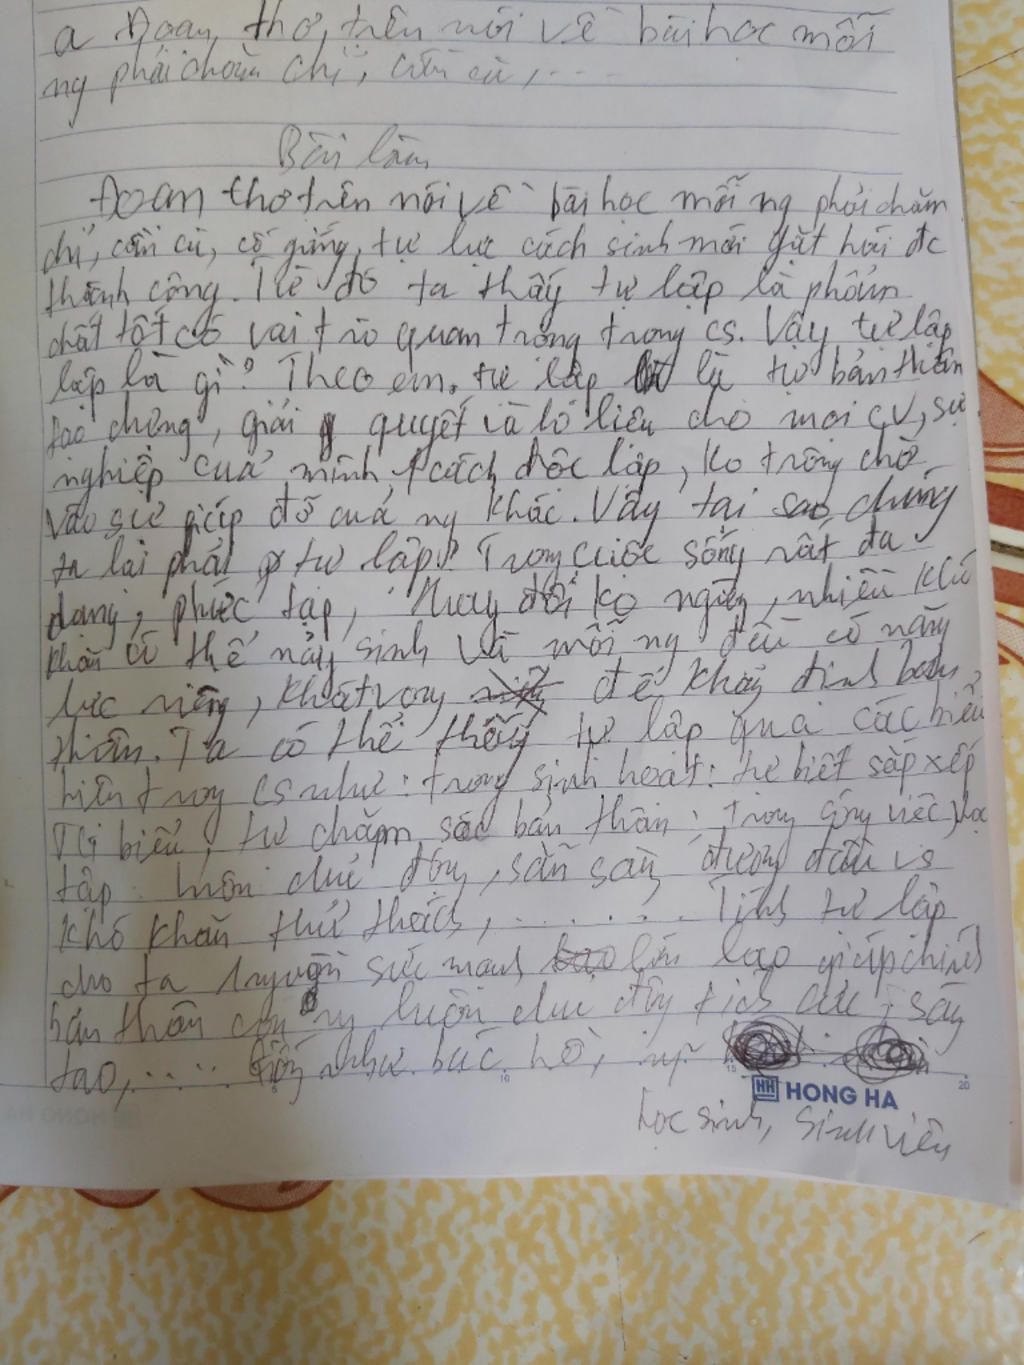 a Đoạn thơ trên nói về bài học mỗi
ng phải chăm chỉ, cần cù, ....
Bài làm
Đoạn thơ trên nói về bài học mỗi ng phải chăm
chỉ, cần cù, cố gắng, tự lực cách sinh mới gặt hái đc
thành công. Từ đó ta thấy tự lập là phẩm
chất tốt có vai trò quan trọng trong cs. Vậy tự lập
lập là gì? Theo em, tự lập là tự bản thân
giải quyết và lo liệu cho mọi cv, sự
nghiệp của mình 1 cách độc lập, ko trông chờ
vào sự giúp đỡ của ng khác. Vậy tại sao chúng
ta lại phải tự lập? Trong cuộc sống rất đa
dạng, phức tạp, thay đổi ko ngừng, nhiều khó
khăn có thể nảy sinh và mỗi ng đều có năng
lực riêng, khát vọng để khẳng định bản
thân. Ta có thể thấy tự lập qua các biểu
hiện trong cs như: trong sinh hoạt: tự biết sắp xếp
TG biểu, tự chăm sóc bản thân; trong công việc, học
tập: luôn chủ động, sẵn sàng đương đầu vs
khó khăn thử thách, ....... Tính tự lập
cho ta nguồn sức mạnh lớn lao giúp chính
bản thân con ng luôn chủ động tích cực, sáng
tạo, ..... như bác hồ,
HH HONG HA
học sinh, sinh viên
5
10
15
20